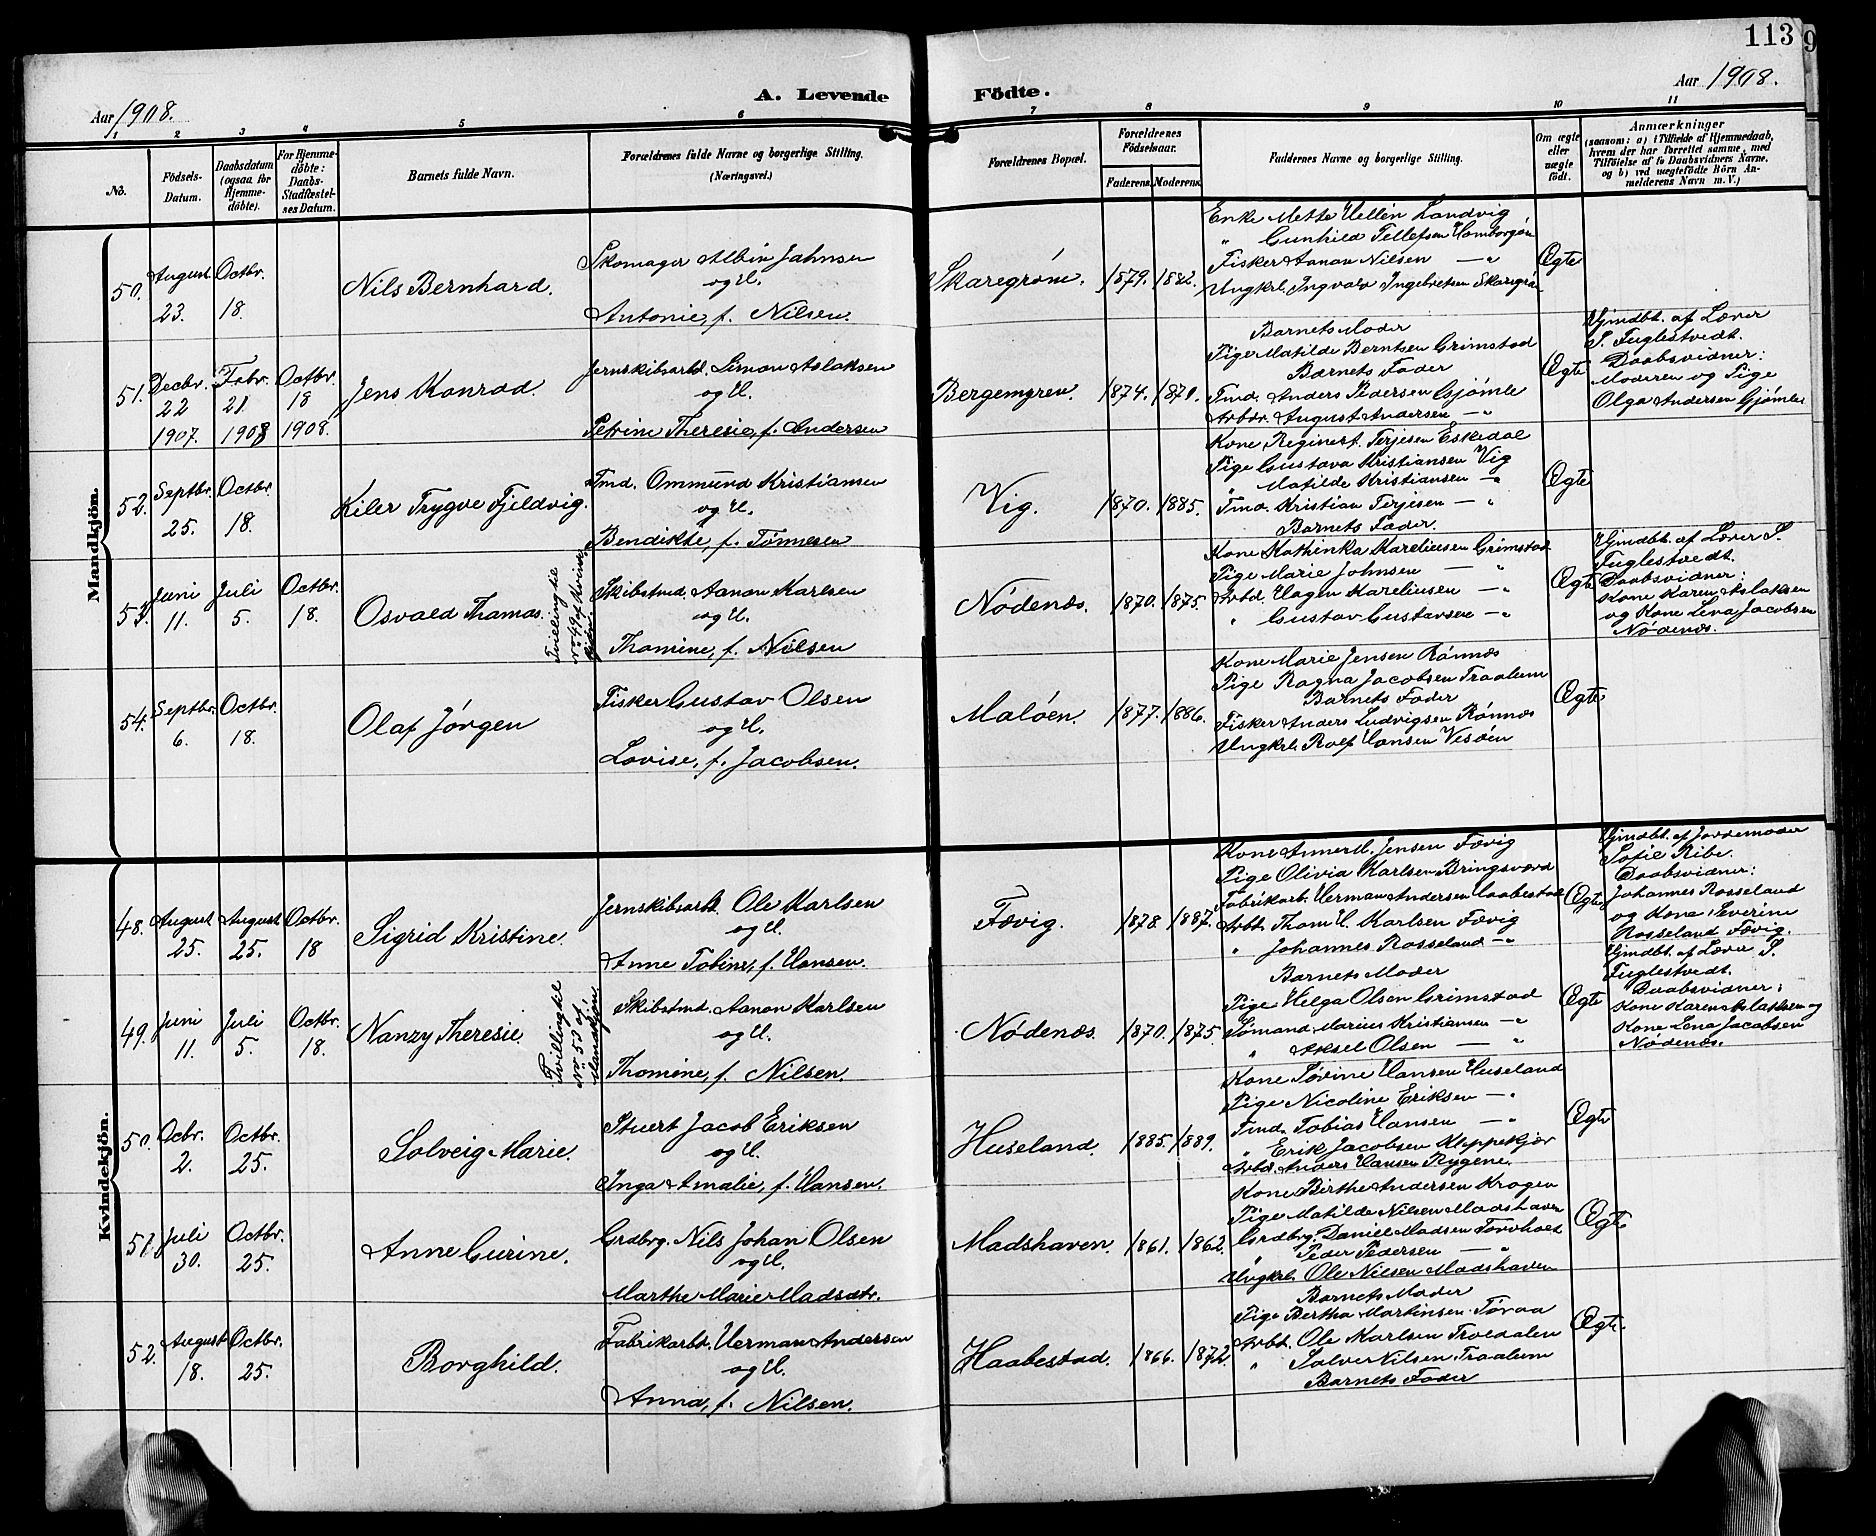 113
9
Aar 1908.
A. Levende
Födte.
Aar 1908.
1
2
3
4
5
6
7
8
9
10
11
No.
Födsels-
Datum.
Daabsdatum
(ogsaa for
Hjemme-
döbte).
For Hjemme-
döbte:
Daabs-
Stadfæstel-
ses Datum.
Barnets fulde Navn.
Forældrenes fulde Navne og borgerlige Stilling.
(Næringsvei.)
Forældrenes Bopæl.
Forældrenes
Födselsaar.
Faderens.
Moderens.
Faddernes Navne og borgerlige Stilling.
Om ægte
eller
uægte
födt.
Anmærkninger
(saasom: a) i Tilfælde af Hjemmedaab,
hvem der har forrettet samme, med
Tilföielse af to Daabsvidners Navne,
og b) ved uægtefödte Börn An-
melderens Navn m. V.)
Mandkjön.
50.
August
23.
Octbr.
18.
Nils Bernhard.
Skomager Albin Jahnsen
og H.
Antonie, f. Nilsen.
Skaregrøm.
1879.
1882.
Enke Mette Hellen Landvig
" Gunhild Tellefsen Homborgön
Fisker Aanon Nilsen — "
Ungkrl. Ingvald Ingebretsen Skaregrøm
Ægte
51.
Decbr.
22
1907.
Febr.
21.
1908
Octbr.
18
1908.
Jens Konrad.
Jernskibsarbd. Simon Aslaksen
og H.
Petrine Theresie, f. Andersen
Bergemyren.
1874.
1870.
Barnets Moder
Pige Matilde Berntsen Grimstad
Barnets Fader
Tmd. Anders Pedersen Gjømle
Arbdr. August Andersen — "
Ægte
Hjmdbt. af Lærer
S. Fuglestvedt.
Daabsvidner:
Moderen og Pige
Olga Andersen Gjømle
52.
Septbr.
25.
Octbr.
18.
Kiler Trygve Fjeldvig.
Tmd. Ommund Kristiansen
og H.
Bendikte, f. Tønnesen
Vig.
1870.
1885.
Kone Reginert. Terjesen Eskedal
Pige Gustava Kristiansen Vig
" Matilde Kristiansen — "
Tmd. Kristian Terjesen — "
Barnets Fader.
Ægte
53.
Juni
11.
Juli
5.
Octbr.
18.
Osvald Thomas.
Tvilling til
No 49 af Kvinde-
kjön.
Skibstmd. Aanon Karlsen
og H.
Thomine, f. Nilsen
Nødenæs.
1870.
1875.
Kone Kathinka Kareliusen Grimstad
Pige Marie Johnsen — "
Arbd. Hagen Kareliusen — "
" Gustav Gustavsen — "
Ægte
Hjmdbt. af Lærer S.
Fuglestvedt.
Daabsvidner:
Kone Karen Aslaksen
og Kone Lena Jacobsen
Nødenæs.
54.
Septbr.
6.
Octbr.
18.
Olaf Jørgen
Fisker Gustav Olsen
og H.
Lovise, f. Jacobsen.
Maløen.
1877.
1886.
Kone Marie Jensen Rønnæs
Pige Ragna Jacobsen Traalum
Barnets Fader
Fisker Anders Ludvigsen Rønnæs
Ungkrl. Rolf Hansen Vesöen
Ægte
Kvindekjön.
48.
August
25.
August
25.
Octbr.
18
Sigrid Kristine.
Jernskibsarbd. Ole Karlsen
og H.
Anne Tobine, f. Hansen.
Fævig.
1878.
1887.
Kone Anne M. Jensen Fævig
Pige Olivia Karlsen Bringsværd
Fabrikarb. Herman Andersen Haabestad
Arbd. Thom H. Karlsen Fævig
" Johannes Rosseland — "
Ægte
Hjmdbt. af Jordemoder
Sofie Ribe.
Daabsvidner:
Johannes Rosseland
og Kone Severine
Rosseland Fævig.
49.
Juni
11.
Juli
5.
Octbr.
18.
Nanzy Theresie
Tvilling til
No 53 af
Mandkjön.
Skibstmd. Aanon Karlsen
og H.
Thomine, f. Nilsen.
Nødenæs.
1870.
1875.
Barnets Moder
Pige Helga Olsen Grimstad
Sømand Marius Kristiansen — "
" Aksel Olsen — "
Ægte
Hjmdbt. af Lærer S.
Fuglestvedt.
Daabsvidner:
Kone Karen Aslaksen og
Kone Lena Jacobsen
Nødenæs.
50.
Ocbr.
2.
Octbr.
25.
Solveig Marie.
Stuert Jacob Eriksen
og H.
Inga Amalie, f. Hansen.
Huseland.
1885.
1889.
Kone Søvine Hansen Huseland
Pige Nicoline Eriksen — "
Tmd. Tobias Hansen — "
" Erik Jacobsen Kleppekjær
Arbd. Anders Hansen Rygene.
Ægte
51.
Juli
30.
Octbr.
25.
Anne Gurine.
Grdbrg. Nils Johan Olsen
og H.
Marthe Marie Madsdtr.
Madshaven.
1861.
1862.
Kone Birthe Andersen Krogen
Pige Matilde Nilsen Madshaven
Grdbrg. Daniel Madsen Torvholt
" Peder Pedersen — "
Ungkrl. Ole Nilsen Madshaven
Ægte
52.
August
18.
Octbr.
25.
Borghild.
Fabrikarbd. Herman Andersen
og H.
Anna, f. Nilsen.
Haabestad.
1866.
1872.
Barnets Moder
Pige Bertha Martinsen Toraa
Arbd. Ole Karlsen Trodalen
" Salve Nilsen Traalum
Barnets Fader
Ægte